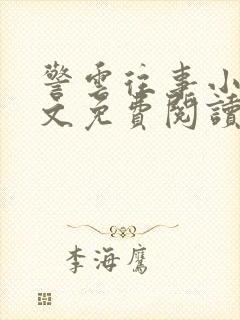 警雲往事小
文免費閱讀
李海鷹